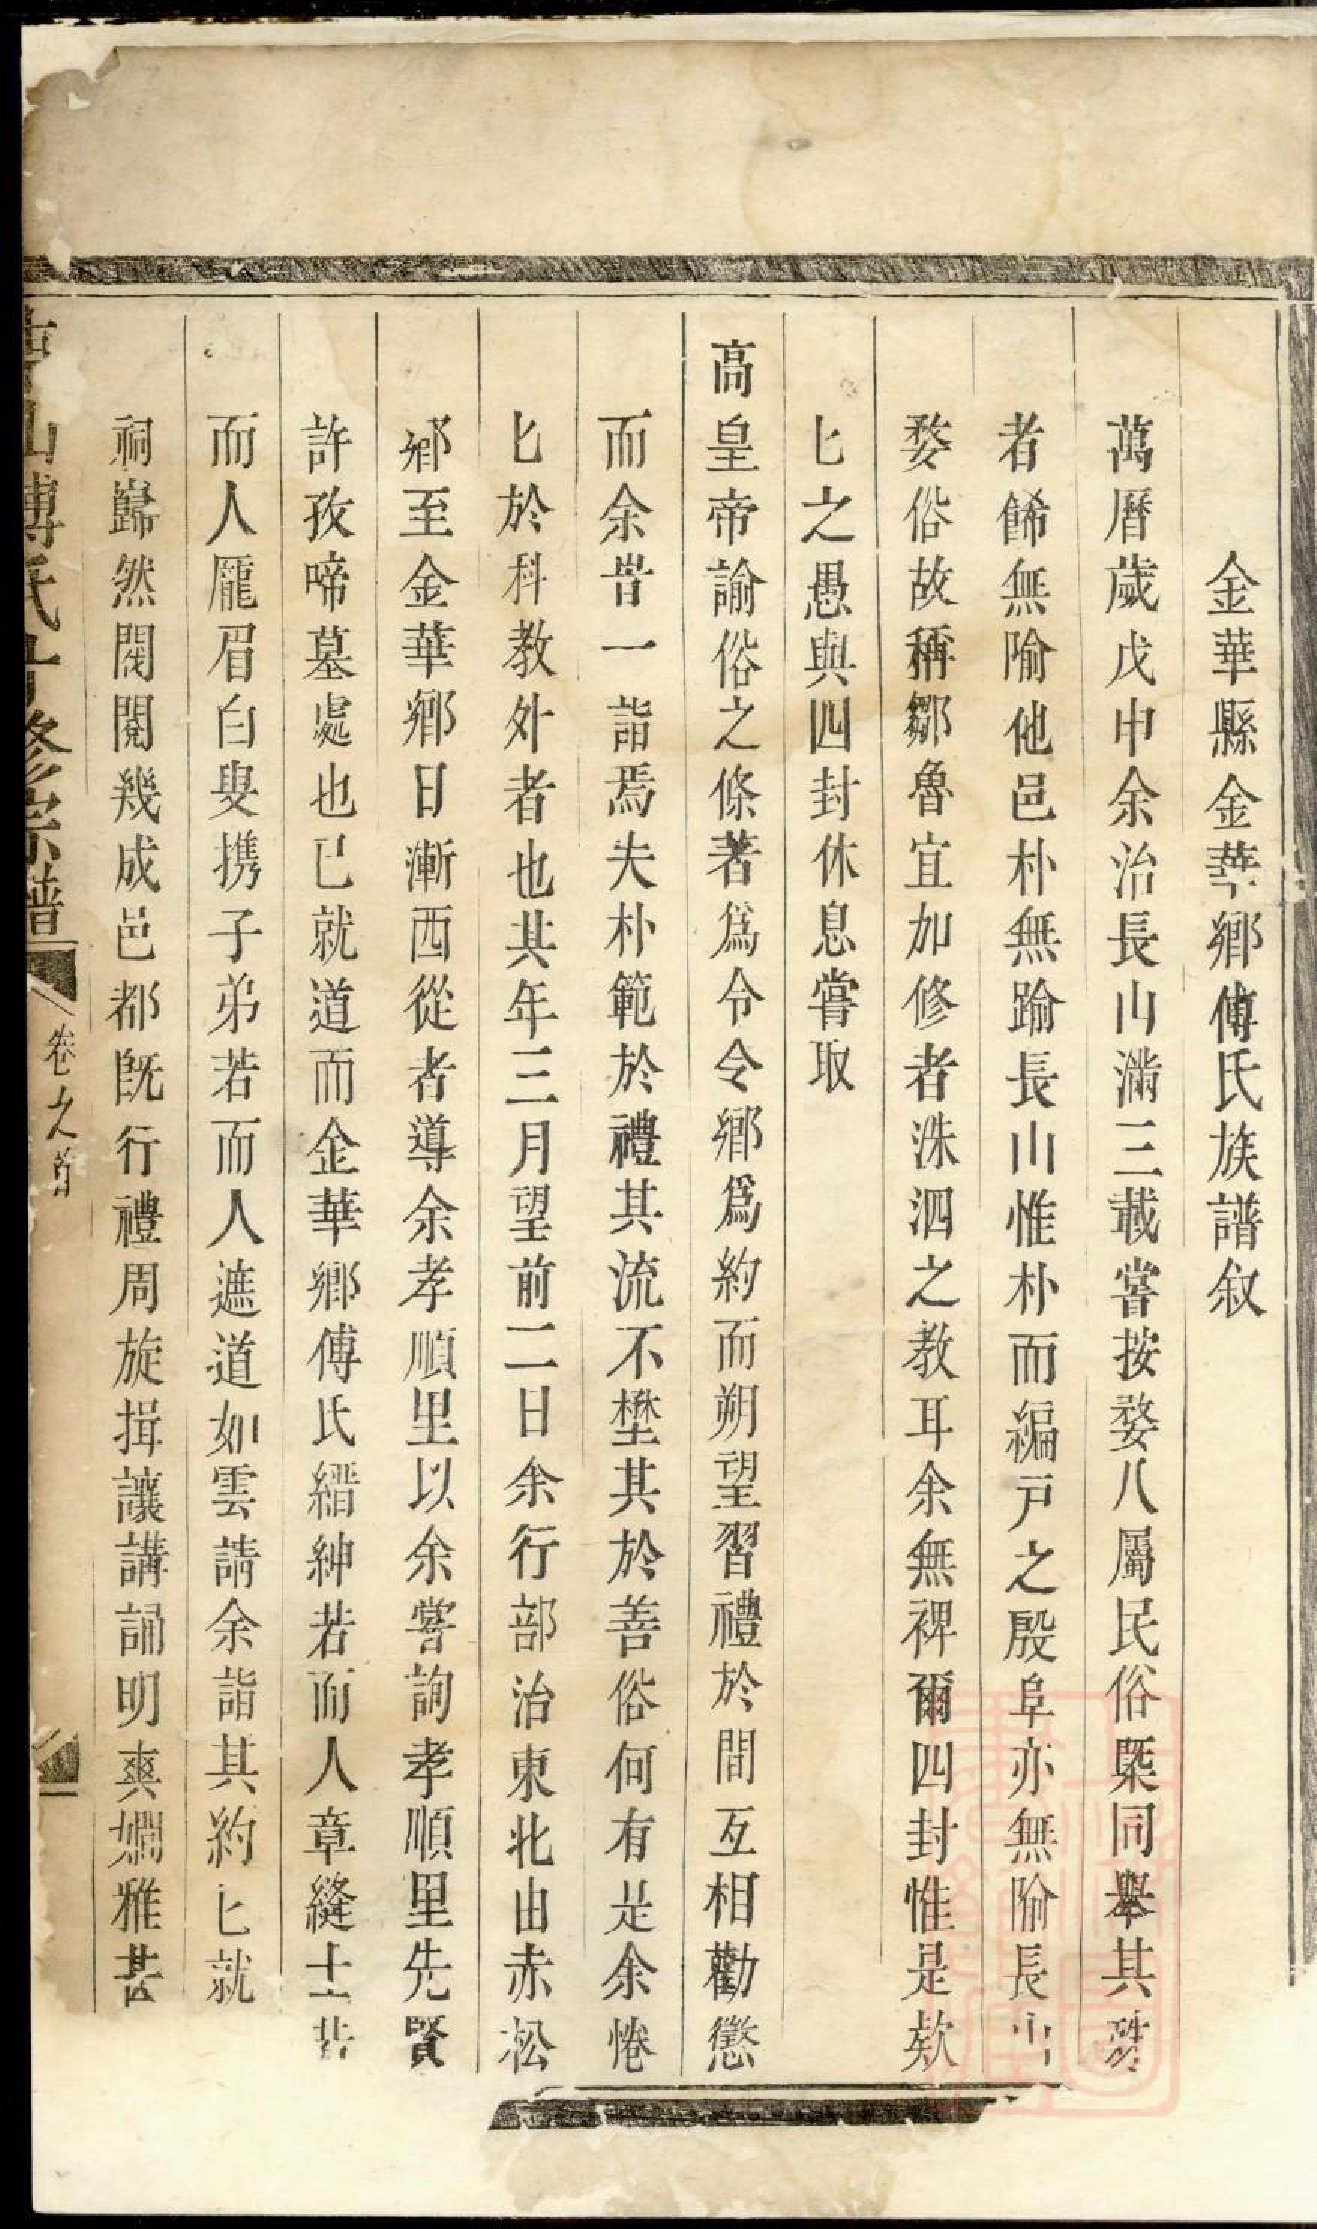 金華縣金華鄉傅氏族譜叙
萬曆歲戊申余治長山滿三載嘗按婺八屬民俗槩同舉其殊
者餙無隃他邑朴無踰長山惟朴而編戸之殷阜亦無隃長山
婺俗故稱鄒魯宜加修者洙泗之教耳余無裨爾四封惟是欵
匕之愚與四封休息嘗取
高皇帝諭俗之條著爲令令鄉爲約而朔望習禮於間互相勸懲
而余昔一詣焉夫朴範於禮其流不壄其於善俗何有是余惓
匕於科教外者也其年三月望前二日余行部治東北由赤松
鄉至金華鄉日漸西從者導余孝順里以余嘗詢孝順里先賢
許孜啼墓處也已就道而金華鄉傅氏縉紳若而人章縫士若
而人厖眉白叟携子弟若而人遮道如雲請余詣其約匕就
祠巋然閥閱幾成邑都既行禮周旋揖讓講誦明爽嫻雅甚
山傅氏修宗譜 卷之首